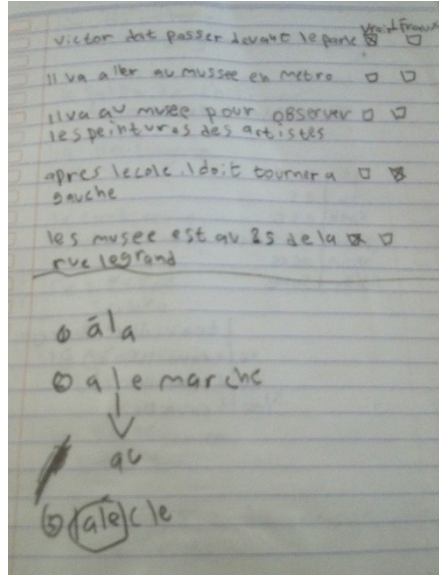 vrai faux
victor doit passer devant le parc ☒ ☐
il va aller au mussee en metro ☐ ☐
il va au musee pour observer ☐ ☐
les peintures des artistes
apres lecole il doit tourner a ☐ ☒
gauche
les musee est au 25 de la ☒ ☐
rue legrand
à la
a le marche
↓
au